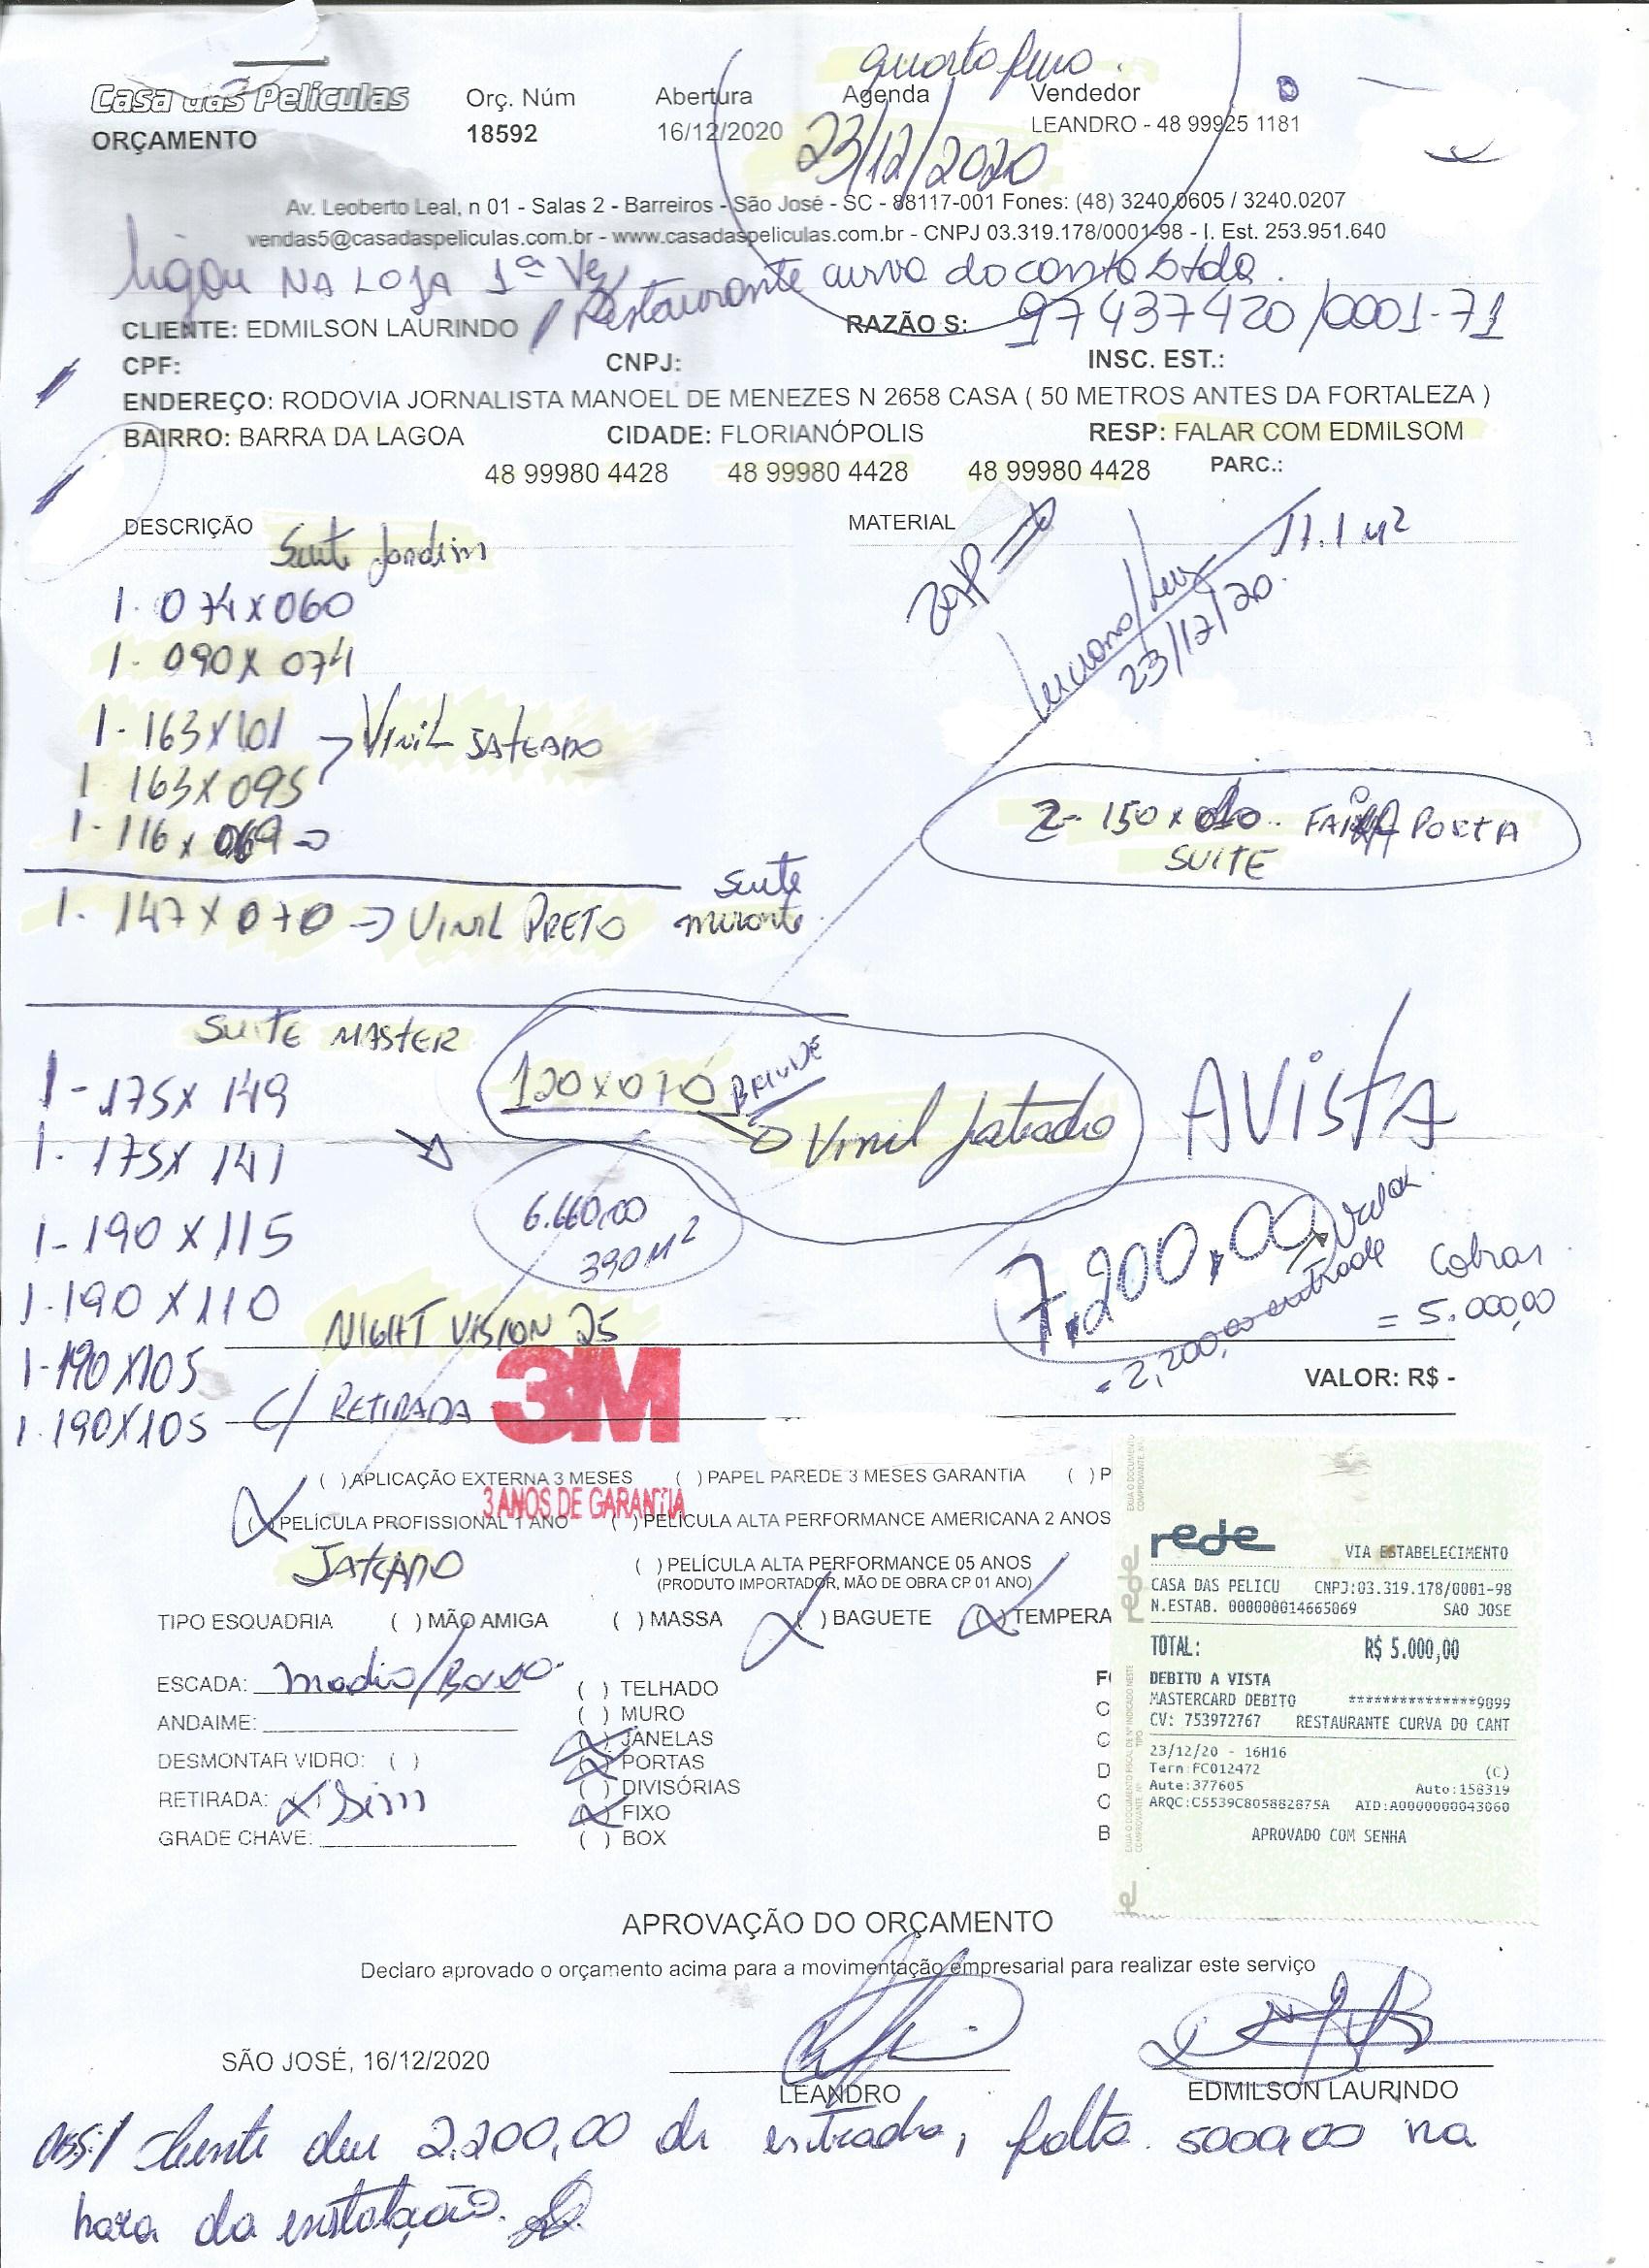 quarta feira.
Casa das Películas
Orç. Núm Abertura Agenda Vendedor
ORÇAMENTO 18592 16/12/2020 23/12/2020 LEANDRO - 48 99925 1181
Av. Leoberto Leal, n 01 - Salas 2 - Barreiros - São José - SC - 88117-001 Fones: (48) 3240.0605 / 3240.0207
vendas5@casadaspeliculas.com.br - www.casadaspeliculas.com.br - CNPJ 03.319.178/0001-98 - I. Est. 253.951.640
Ligou NA LOJA 1ª Vez
Restaurante curva do canto Ltda.
CLIENTE: EDMILSON LAURINDO RAZÃO S: 97437420/0001-71
CPF: CNPJ: INSC. EST.:
ENDEREÇO: RODOVIA JORNALISTA MANOEL DE MENEZES N 2658 CASA ( 50 METROS ANTES DA FORTALEZA )
BAIRRO: BARRA DA LAGOA CIDADE: FLORIANÓPOLIS RESP: FALAR COM EDMILSOM
48 99980 4428 48 99980 4428 48 99980 4428 PARC.:
DESCRIÇÃO MATERIAL
Suite Jardim
17.1 M²
Luciano/Luiz
23/12/20.
1-074x060
1-090x074
1-163x101
VINIL JATEADO
1 163x095
1-116x069
2-150x010. FAIXA PORTA
SUITE
1-147x070 → VINIL PRETO
Suite
mirante
SUITE MASTER
120x070 BRINDE
Vinil Jateado
AVISTA
1-175x149
1-175x141
1-190x115
1-190x110
1-190x105
1-190x105
6.660,00
390M²
7.200,00 Valor
-2,200,00 entrada
Cobrar
= 5.000,00
NIGHT VISION 25
C/ RETIRADA
3M
VALOR: R$ -
( ) APLICAÇÃO EXTERNA 3 MESES ( ) PAPEL PAREDE 3 MESES GARANTIA ( ) P
3 ANOS DE GARANTIA
(X) PELÍCULA PROFISSIONAL 1 ANO ( ) PELÍCULA ALTA PERFORMANCE AMERICANA 2 ANOS
JATEADO
( ) PELÍCULA ALTA PERFORMANCE 05 ANOS
(PRODUTO IMPORTADOR, MÃO DE OBRA CP 01 ANO)
TIPO ESQUADRIA ( ) MÃO AMIGA ( ) MASSA (X) BAGUETE (X) TEMPERA
ESCADA: Media/Baixo.
ANDAIME:
DESMONTAR VIDRO: ( )
RETIRADA: (X) Sim
GRADE CHAVE:
( ) TELHADO
( ) MURO
(X) JANELAS
(X) PORTAS
( ) DIVISÓRIAS
(X) FIXO
( ) BOX
C
C
D
C
B
rede
VIA ESTABELECIMENTO
CASA DAS PELICU CNPJ:03.319.178/0001-98
N.ESTAB. 000000014665069 SAO JOSE
TOTAL: R$ 5.000,00
DEBITO A VISTA
MASTERCARD DEBITO ***************9099
CV: 753972767 RESTAURANTE CURVA DO CANT
23/12/20 - 16H16
Term:FC012472 (C)
Aute:377605 Auto:158319
ARQC:C5539C805882875A AID:A0000000043060
APROVADO COM SENHA
APROVAÇÃO DO ORÇAMENTO
Declaro aprovado o orçamento acima para a movimentação empresarial para realizar este serviço
SÃO JOSÉ, 16/12/2020
LEANDRO EDMILSON LAURINDO
OBS:/ cliente deu 2.200,00 de entrada, falta 5000,00 na
hora da instalação.